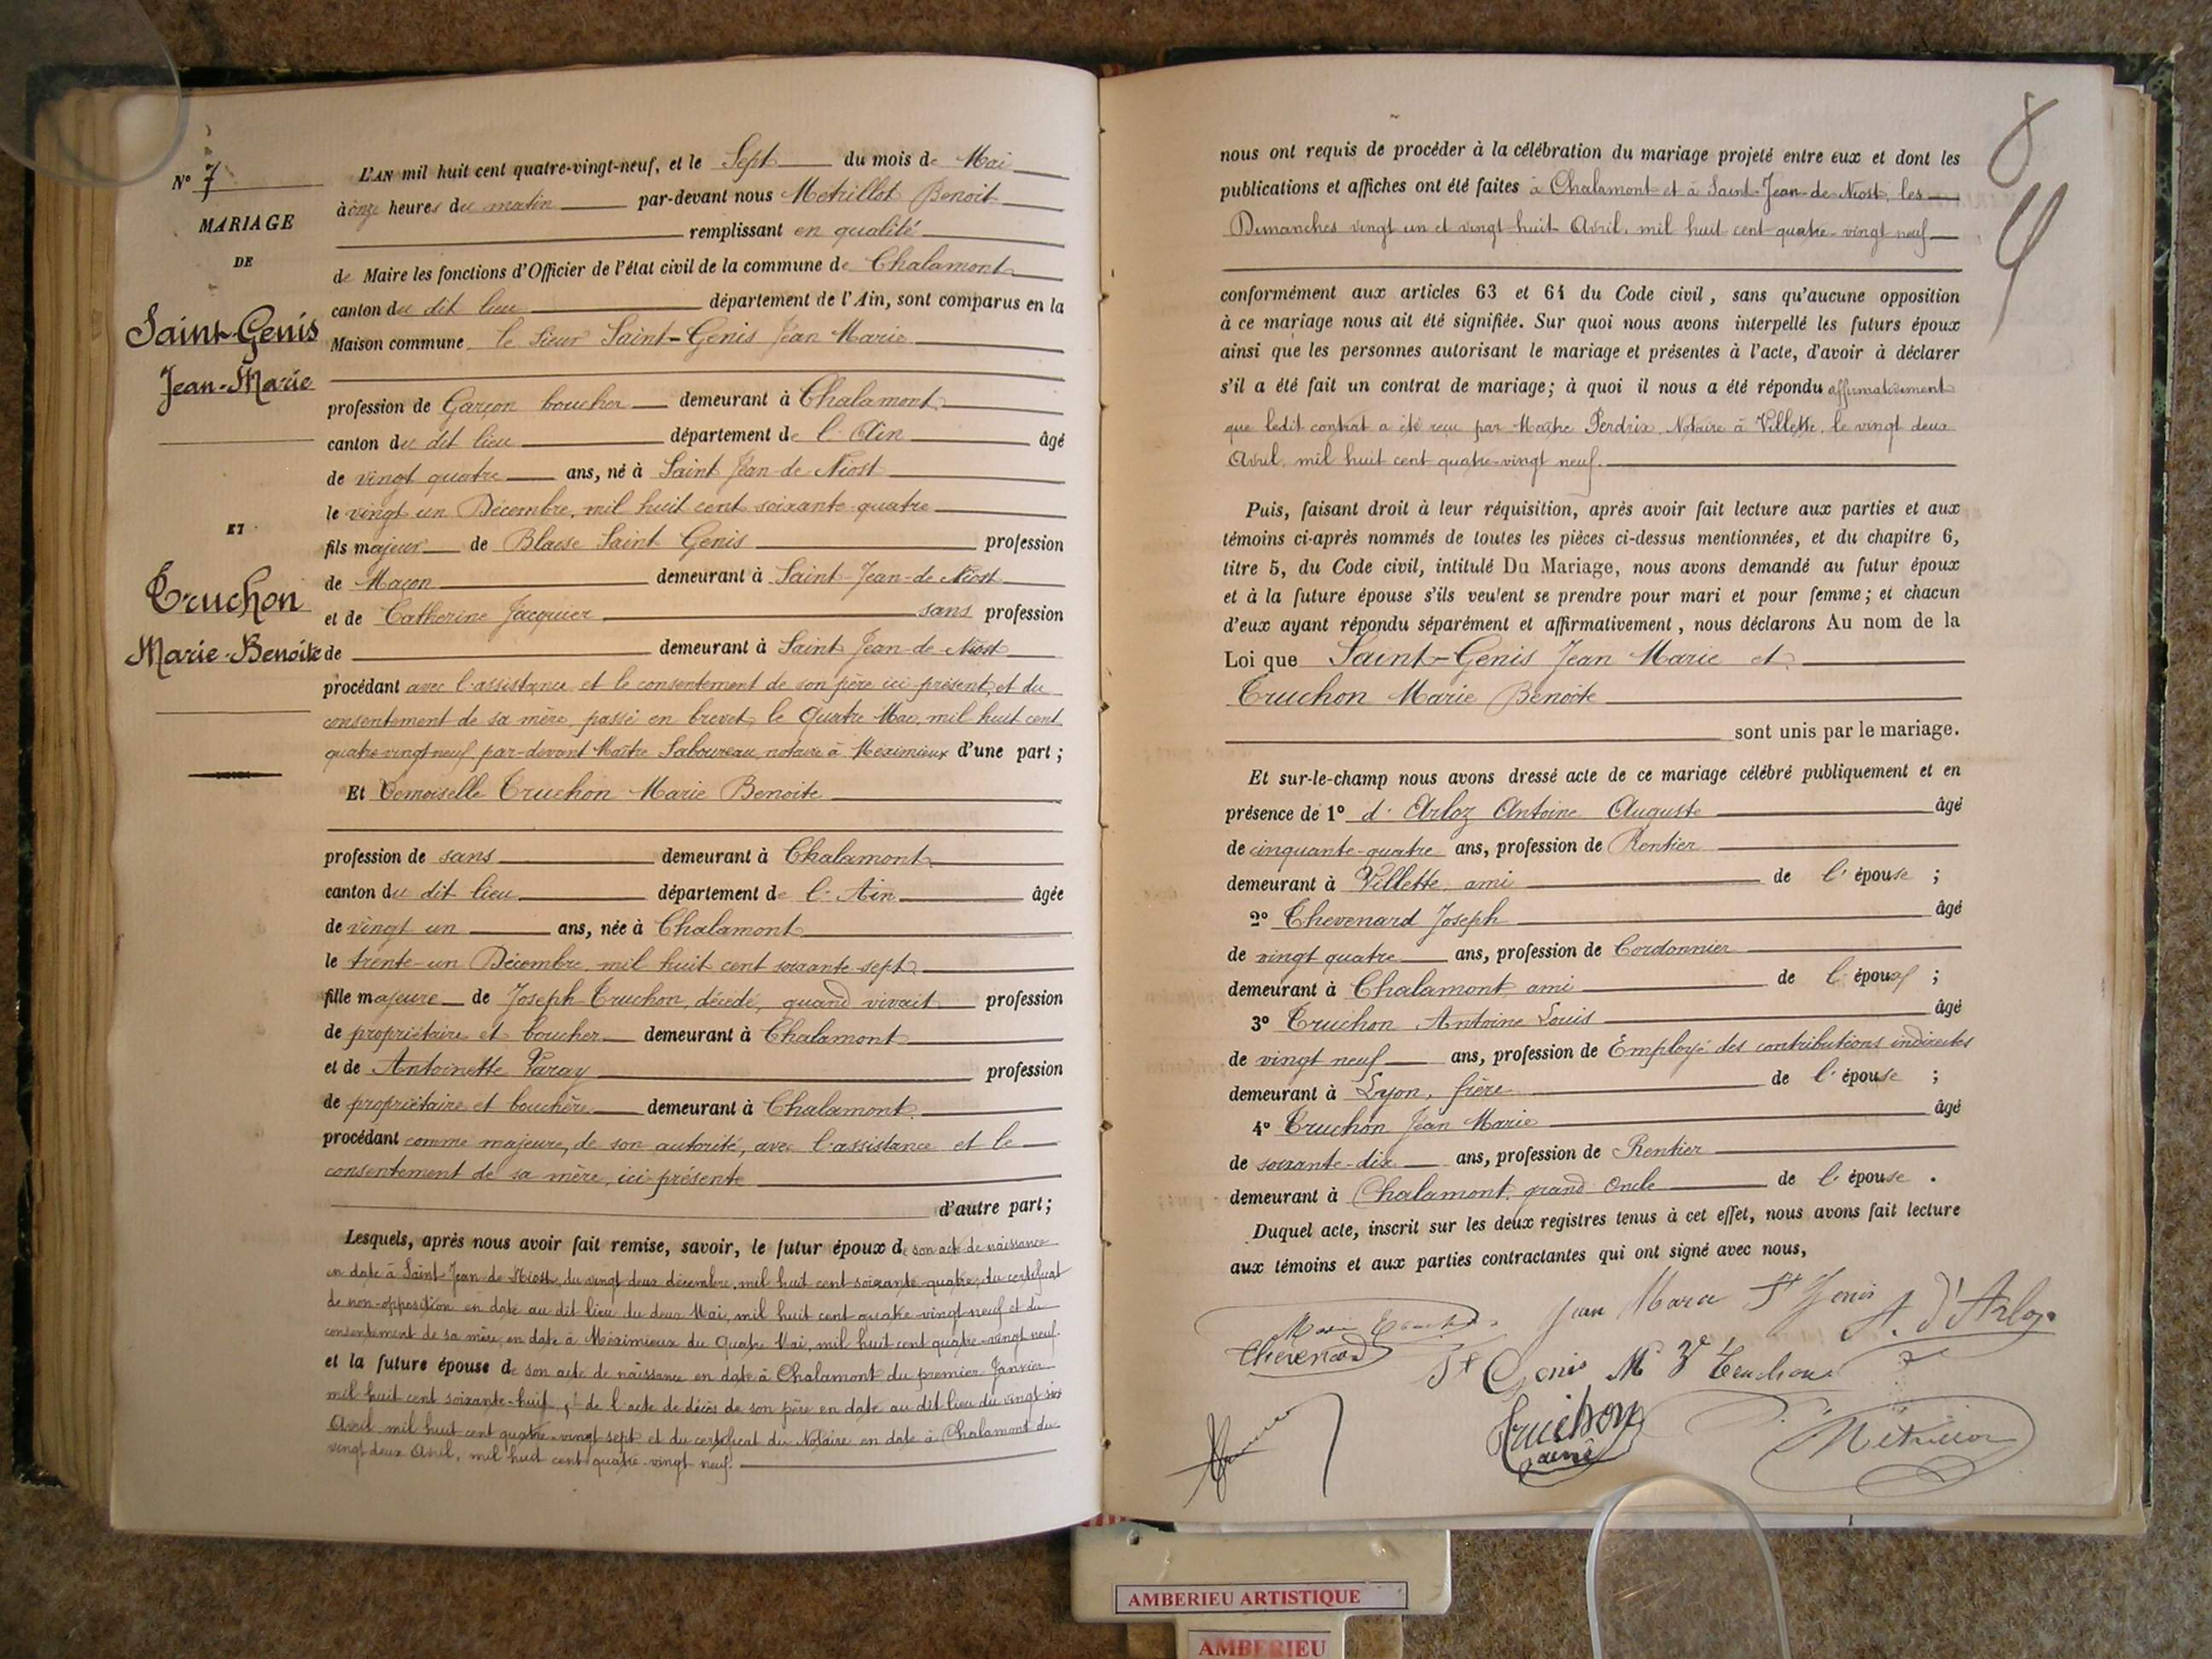 N° 7
MARIAGE
DE
Saint-Genis
Jean-Marie
ET
Truchon
Marie-Benoite
L'AN mil huit cent quatre-vingt-neuf, et le Sept du mois de Mai
à onze heures du matin par-devant nous Metrillot Benoit
remplissant en qualité
de Maire les fonctions d'Officier de l'état civil de la commune de Chalamont
canton du dit lieu département de l'Ain, sont comparus en la
Maison commune le Sieur Saint-Genis Jean Marie
profession de Garçon boucher demeurant à Chalamont
canton du dit lieu département de l'Ain âgé
de vingt quatre ans, né à Saint Jean de Niost
le vingt un Décembre, mil huit cent soixante-quatre
fils majeur de Blaise Saint Genis profession
de Maçon demeurant à Saint-Jean-de Niost
et de Catherine Jacquier sans profession
de demeurant à Saint Jean-de-Niost
procédant avec l'assistance et le consentement de son père ici présent, et du
consentement de sa mère, passé en brevet, le Quatre Mai, mil huit cent
quatre-vingt neuf par-devant Maître Laboureau, notaire à Meximieux d'une part ;
Et Demoiselle Truchon Marie Benoite
profession de sans demeurant à Chalamont
canton du dit lieu département de l'Ain âgée
de vingt un ans, née à Chalamont
le trente-un Décembre, mil huit cent soixante-sept
fille majeure de Joseph Truchon, décédé, quand vivait profession
de propriétaire et boucher demeurant à Chalamont
et de Antoinette Varay profession
de propriétaire et bouchère demeurant à Chalamont
procédant comme majeure, de son autorité, avec l'assistance et le
consentement de sa mère, ici présente
d'autre part ;
Lesquels, après nous avoir fait remise, savoir, le futur époux de son acte de naissance
en date à Saint-Jean de Niost, du vingt deux décembre, mil huit cent soixante-quatre, du certificat
de non-opposition en date au dit lieu du deux Mai, mil huit cent quatre-vingt-neuf et du
consentement de sa mère, en date à Méximieux du Quatre Mai, mil huit cent quatre-vingt neuf.
et la future épouse de son acte de naissance en date à Chalamont du premier Janvier
mil huit cent soixante-huit, de l'acte de décès de son père en date au dit lieu du vingt six
Avril mil huit cent quatre-vingt sept et du certificat du Notaire en date à Chalamont du
vingt deux Avril, mil huit cent quatre-vingt neuf.
8
nous ont requis de procéder à la célébration du mariage projeté entre eux et dont les
publications et affiches ont été faites à Chalamont et à Saint-Jean-de-Niost, les
Dimanches vingt un et vingt-huit Avril, mil huit cent quatre-vingt neuf
conformément aux articles 63 et 64 du Code civil, sans qu'aucune opposition
à ce mariage nous ait été signifiée. Sur quoi nous avons interpellé les futurs époux
ainsi que les personnes autorisant le mariage et présentes à l'acte, d'avoir à déclarer
s'il a été fait un contrat de mariage ; à quoi il nous a été répondu affirmativement
que ledit contrat a été reçu par Maître Perdrix, Notaire à Villette, le vingt deux
Avril, mil huit cent quatre-vingt neuf.
Puis, faisant droit à leur réquisition, après avoir fait lecture aux parties et aux
témoins ci-après nommés de toutes les pièces ci-dessus mentionnées, et du chapitre 6,
titre 5, du Code civil, intitulé Du Mariage, nous avons demandé au futur époux
et à la future épouse s'ils veulent se prendre pour mari et pour femme ; et chacun
d'eux ayant répondu séparément et affirmativement, nous déclarons Au nom de la
Loi que Saint-Genis Jean Marie et
Truchon Marie Benoite
sont unis par le mariage.
Et sur-le-champ nous avons dressé acte de ce mariage célébré publiquement et en
présence de 1° d'Arloz Antoine Auguste âgé
de cinquante-quatre ans, profession de Rentier
demeurant à Villette, ami de l'épouse ;
2° Chevenard Joseph âgé
de vingt quatre ans, profession de Cordonnier
demeurant à Chalamont ami de l'époux ;
3° Truchon Antoine Louis âgé
de vingt neuf ans, profession de Employé des contributions indirectes
demeurant à Lyon, frère de l'épouse ;
4° Truchon Jean Marie âgé
de soixante-dix ans, profession de Rentier
demeurant à Chalamont, grand Oncle de l'épouse .
Duquel acte, inscrit sur les deux registres tenus à cet effet, nous avons fait lecture
aux témoins et aux parties contractantes qui ont signé avec nous,
Jean Marie St Genis
A. d'Arloz
Chevenard
St Genis
Ve Truchon
Truchon
ainé
AMBERIEU ARTISTIQUE
AMBERIEU